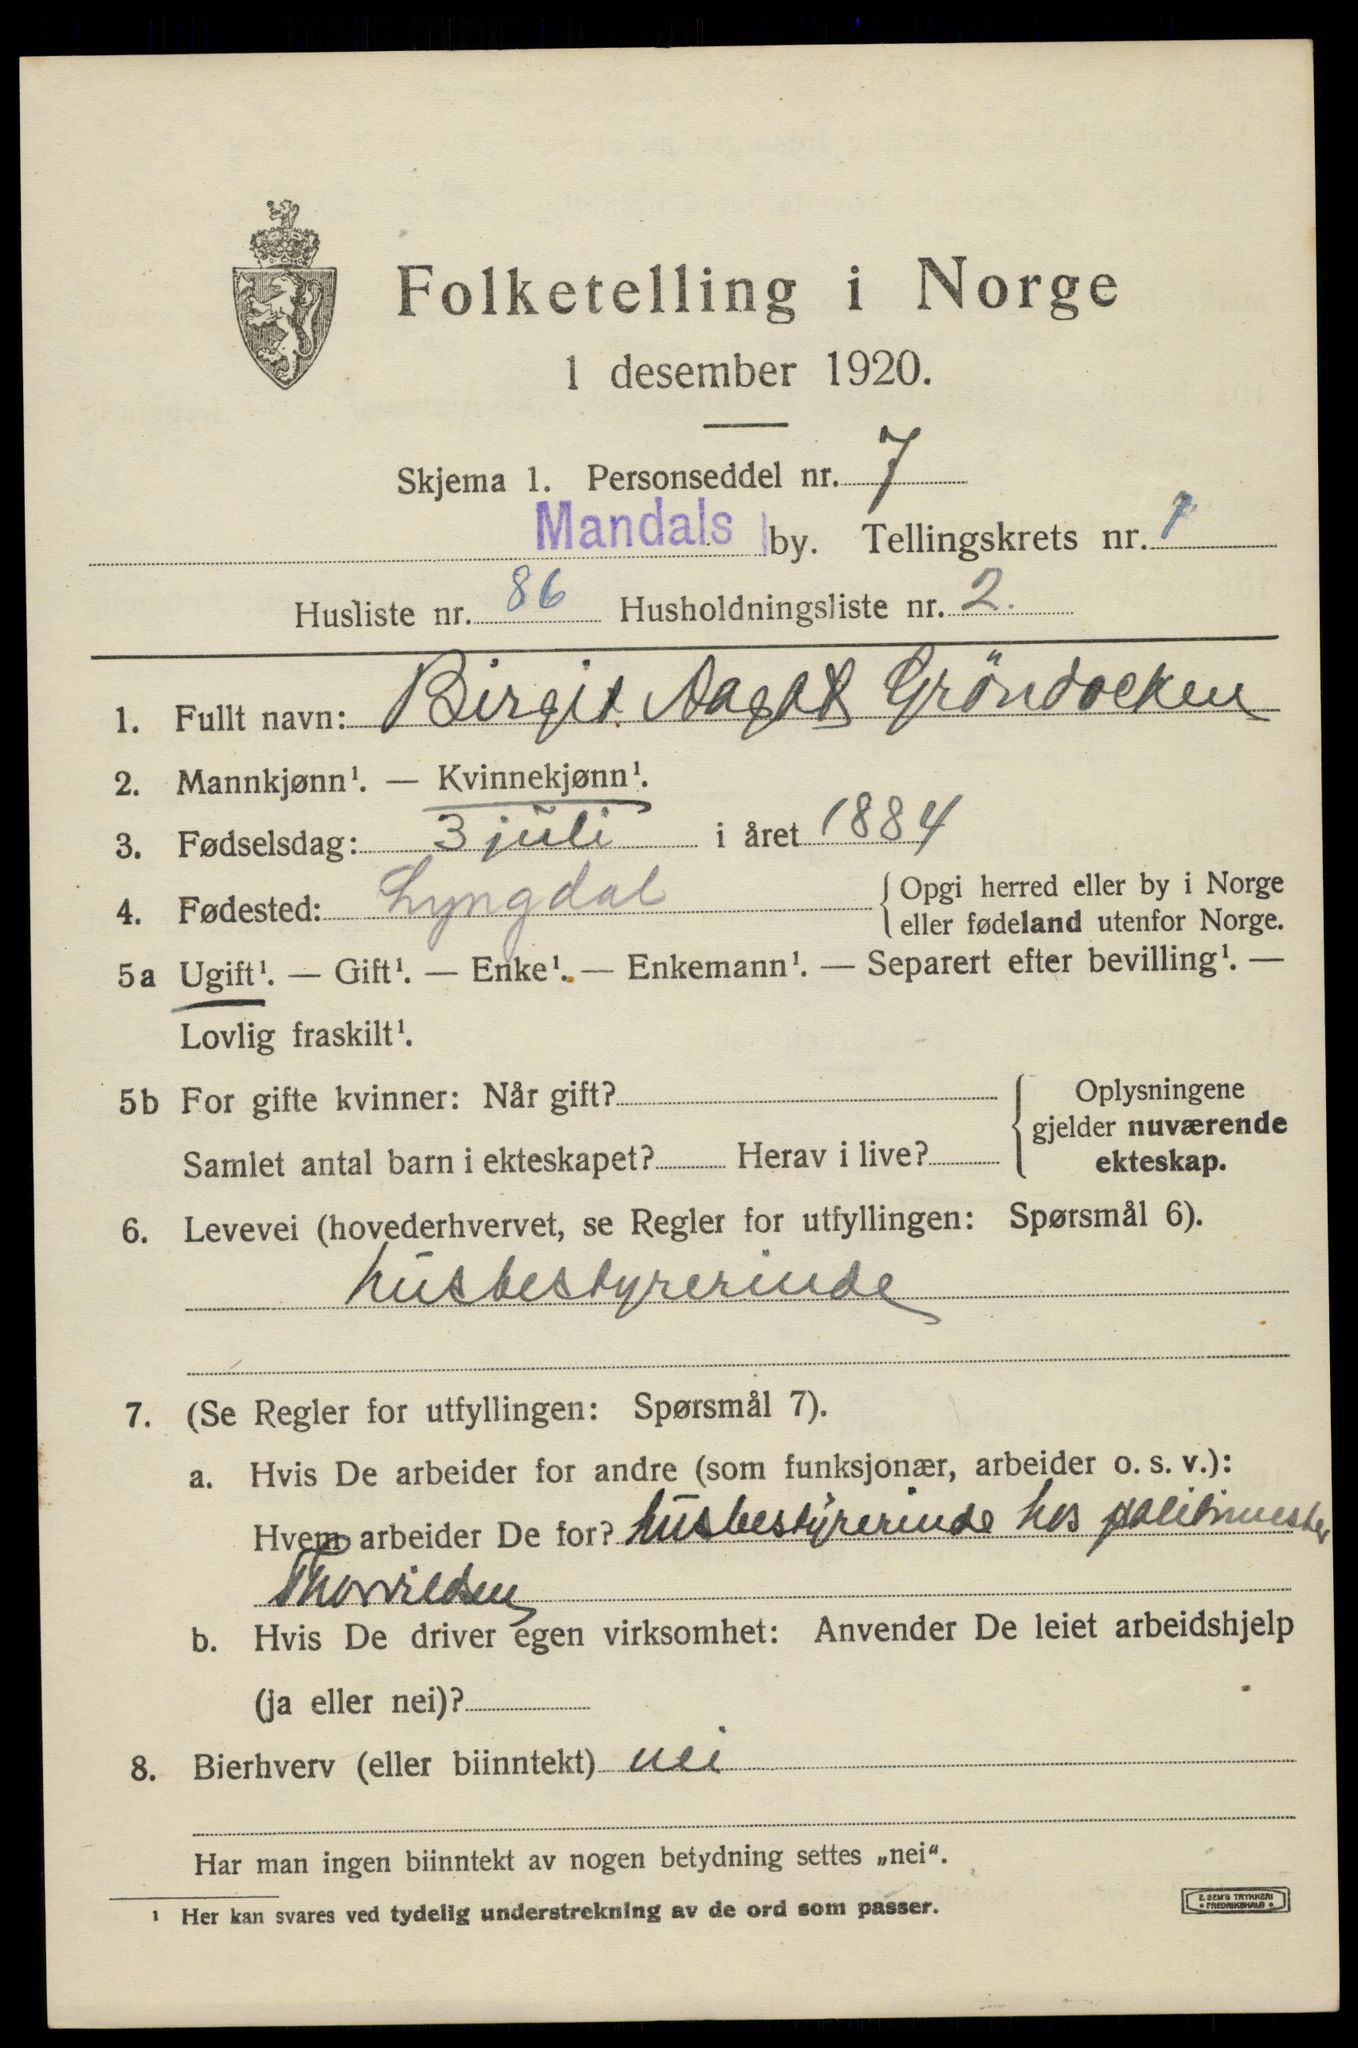 Folketelling i Norge
1 desember 1920.
Skjema 1. Personseddel nr. 7
Mandals by. Tellingskrets nr. 7
Husliste nr. 86 Husholdningsliste nr. 2.
1. Fullt navn: Birgit Gröndocken
2. Mannkjønn¹. — Kvinnekjønn¹.
3. Fødselsdag: 3 juli i året 1884
4. Fødested: Lyngdal { Opgi herred eller by i Norge
eller fødeland utenfor Norge.
5a Ugift¹. — Gift¹. — Enke¹. — Enkemann¹. — Separert efter bevilling¹. —
Lovlig fraskilt¹.
5b For gifte kvinner: Når gift? { Oplysningene
gjelder nuværende
Samlet antal barn i ekteskapet? Herav i live? ekteskap.
6. Levevei (hovederhvervet, se Regler for utfyllingen: Spørsmål 6).
husbestyrerinde
7. (Se Regler for utfyllingen: Spørsmål 7).
a. Hvis De arbeider for andre (som funksjonær, arbeider o. s. v.):
Hvem arbeider De for? husbestyrerinde hos politimester
Thorvildsen
b. Hvis De driver egen virksomhet: Anvender De leiet arbeidshjelp
(ja eller nei)?
8. Bierhverv (eller biinntekt) nei
Har man ingen biinntekt av nogen betydning settes „nei“.
¹ Her kan svares ved tydelig understrekning av de ord som passer.
E. SEM'S TRYKKERI
• FREDRIKSHALD •